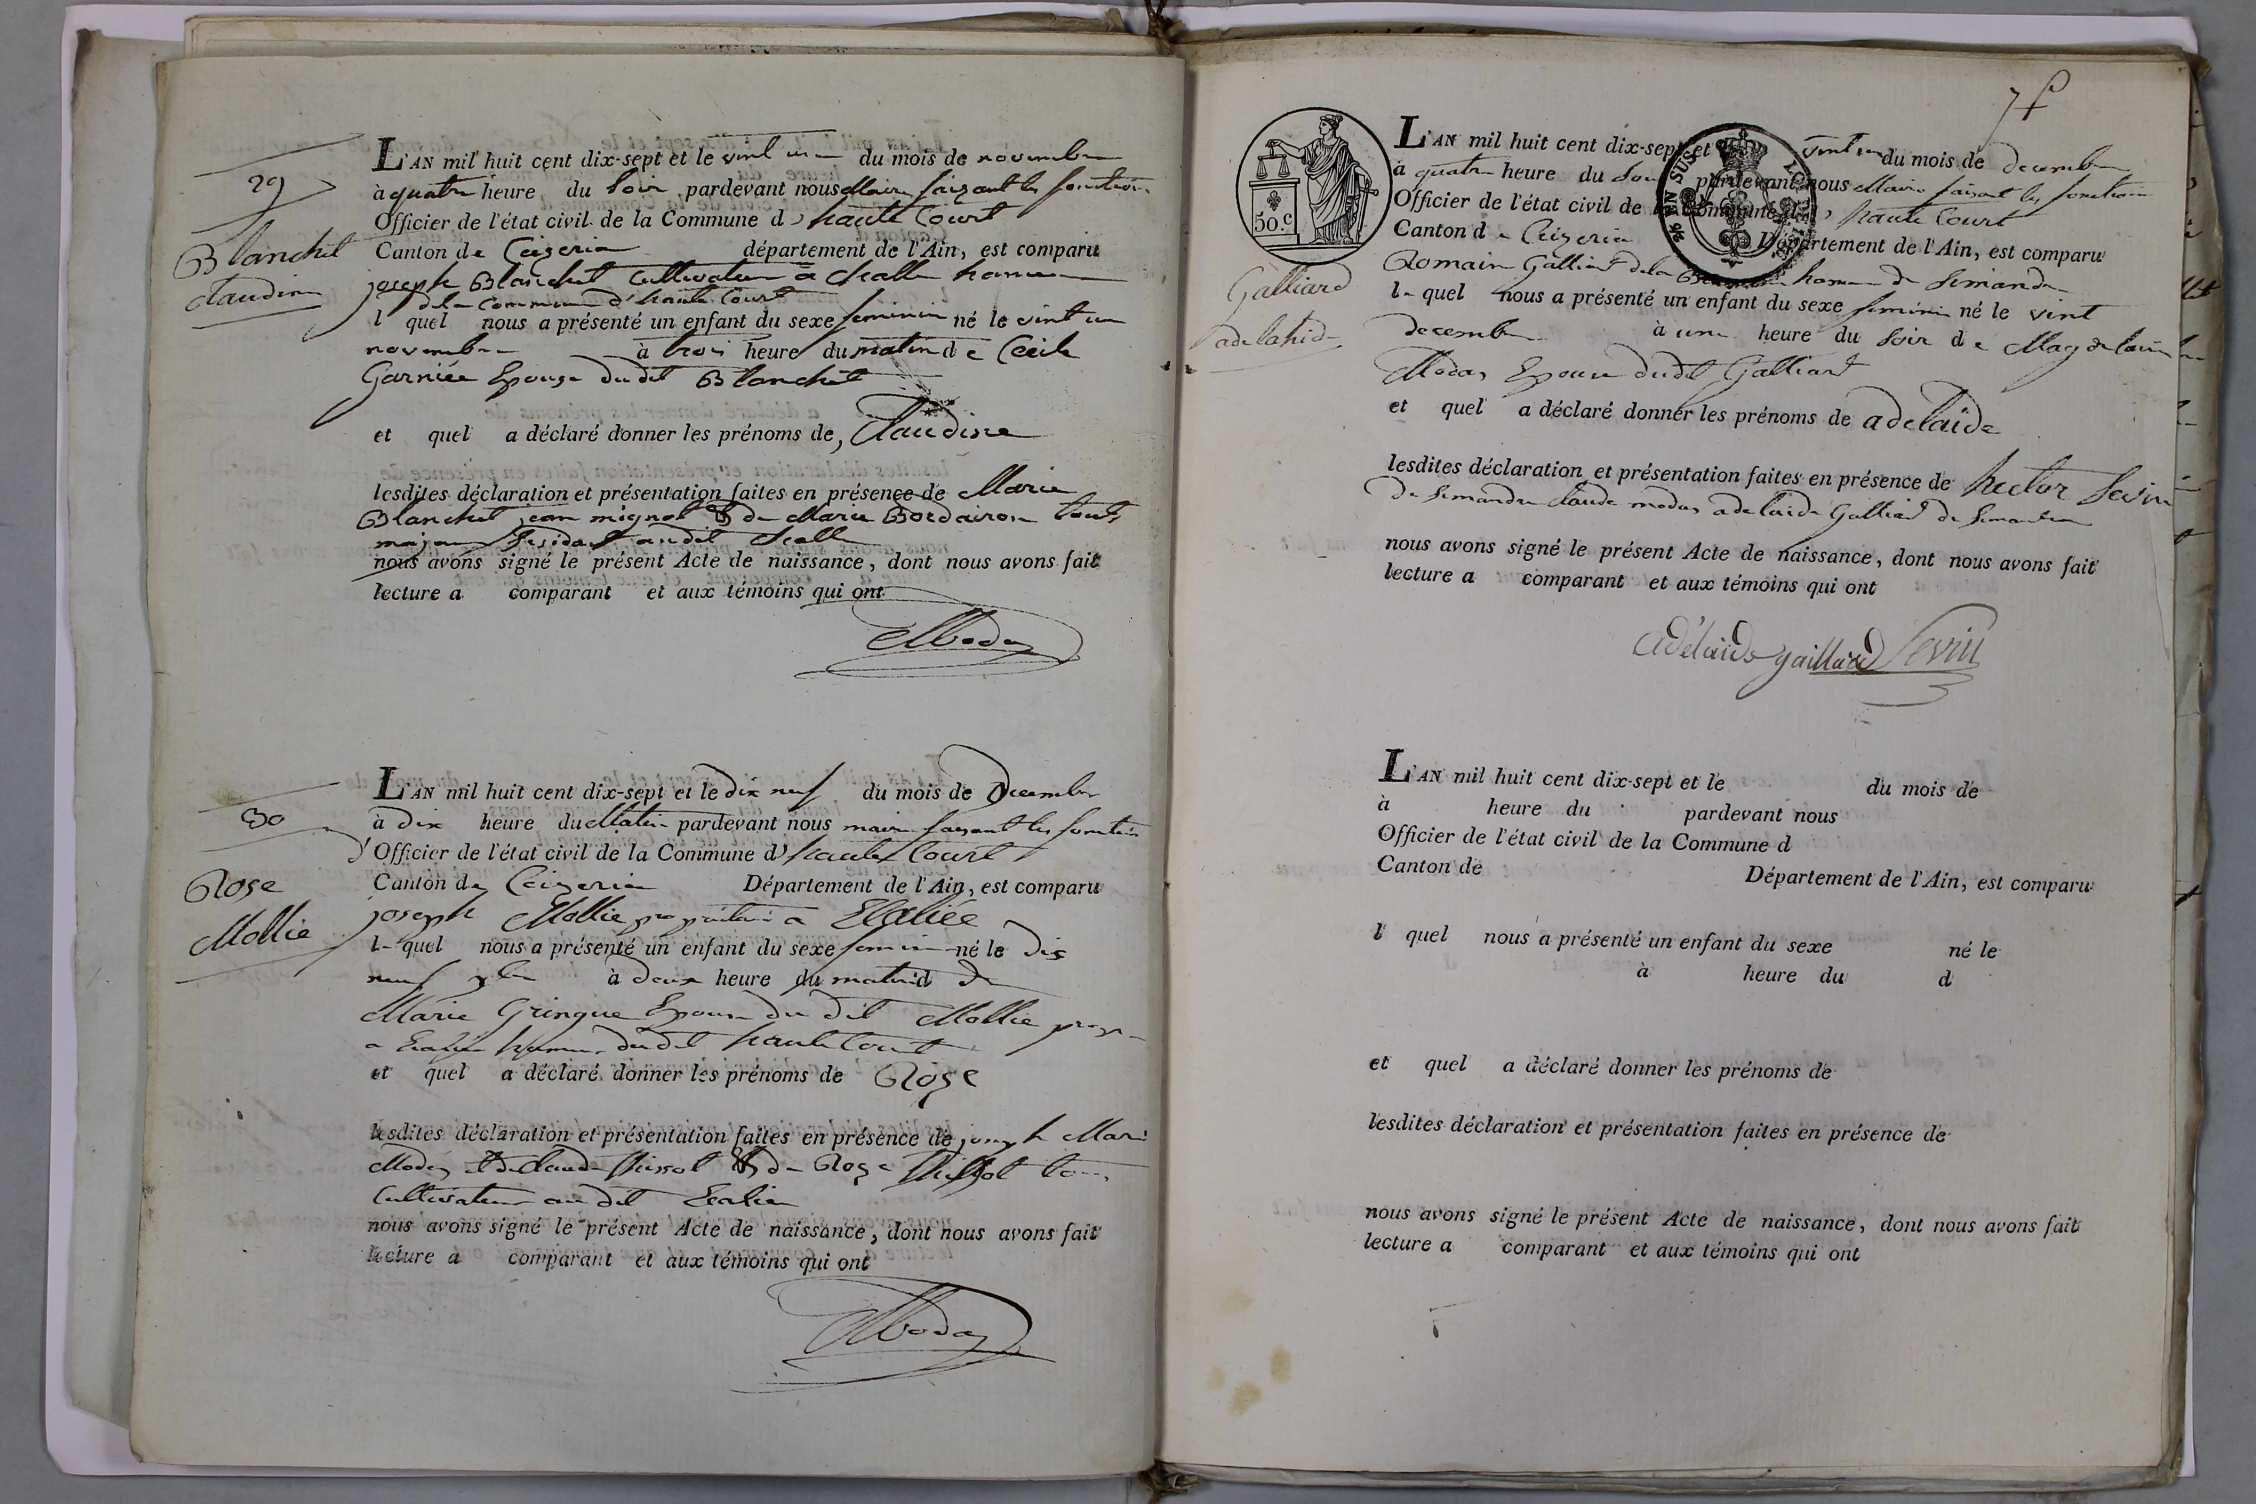 29
Blanchet
Claudine
L'AN mil huit cent dix-sept et le vint un du mois de novembre
à quatre heure du soir pardevant nous Maire faisant les fonctions
Officier de l'état civil de la Commune d haute Court
Canton de Ceizeria département de l'Ain, est comparu
joseph Blanchet Cultivateur a Challe hameau
de la commune d'haute Court
l quel nous a présenté un enfant du sexe feminin né le vint un
novembre à trois heure du matin de Cecile
Garniée Epouse dudit Blanchet
et quel a déclaré donner les prénoms de, Claudine
lesdites déclaration et présentation faites en présence de Marie
Blanchet jean mignot & de Marie tous
majeur residant audit Challe
nous avons signé le présent Acte de naissance, dont nous avons fait
lecture a comparant et aux témoins qui ont
Moday
30
Rose
Mollie
L'AN mil huit cent dix-sept et le dix neuf du mois de Decembre
à dix heure du Matin pardevant nous maire faisant les fonctions
d'Officier de l'état civil de la Commune d haute Court
Canton de Ceizeria Département de l'Ain, est comparu
joseph Mollie propriétaire a
le quel nous a présenté un enfant du sexe feminin né le dix
neuf à deux heure du matin d de
Marie Gringue Epouse du dit Mollie
a hameau dudit haute Court
et quel a déclaré donner les prénoms de Rose
lesdites déclaration et présentation faites en présence de joseph Marie
Moday et de Claude & de Rose tous
Cultivateur au dit
nous avons signé le présent Acte de naissance, dont nous avons fait
lecture a comparant et aux témoins qui ont
Moday
50.c
EN SUS
Galliard
adelahide
L'AN mil huit cent dix-sept et vint un du mois de decembre
à quatre heure du soir pardevant nous Maire faisant les fonctions
Officier de l'état civil de la Commune d haute Court
Canton de Ceizeria Département de l'Ain, est comparu
Romain Galliard de la hameau de Simandre
le quel nous a présenté un enfant du sexe feminin né le vint
decembre à une heure du soir de Magdelaine
Moday Epouse dudit Galliard
et quel a déclaré donner les prénoms de adelaide
lesdites déclaration et présentation faites en présence de hector Sevin
de Simandre Claude moday adelaide Galliard de Simandre
nous avons signé le présent Acte de naissance, dont nous avons fait
lecture a comparant et aux témoins qui ont
Adélaide gaillard Sevin
L'AN mil huit cent dix-sept et le du mois de
à heure du pardevant nous
Officier de l'état civil de la Commune d
Canton de Département de l'Ain, est comparu
l quel nous a présenté un enfant du sexe né le
à heure du d
et quel a déclaré donner les prénoms de
lesdites déclaration et présentation faites en présence de
nous avons signé le présent Acte de naissance, dont nous avons fait
lecture a comparant et aux témoins qui ont